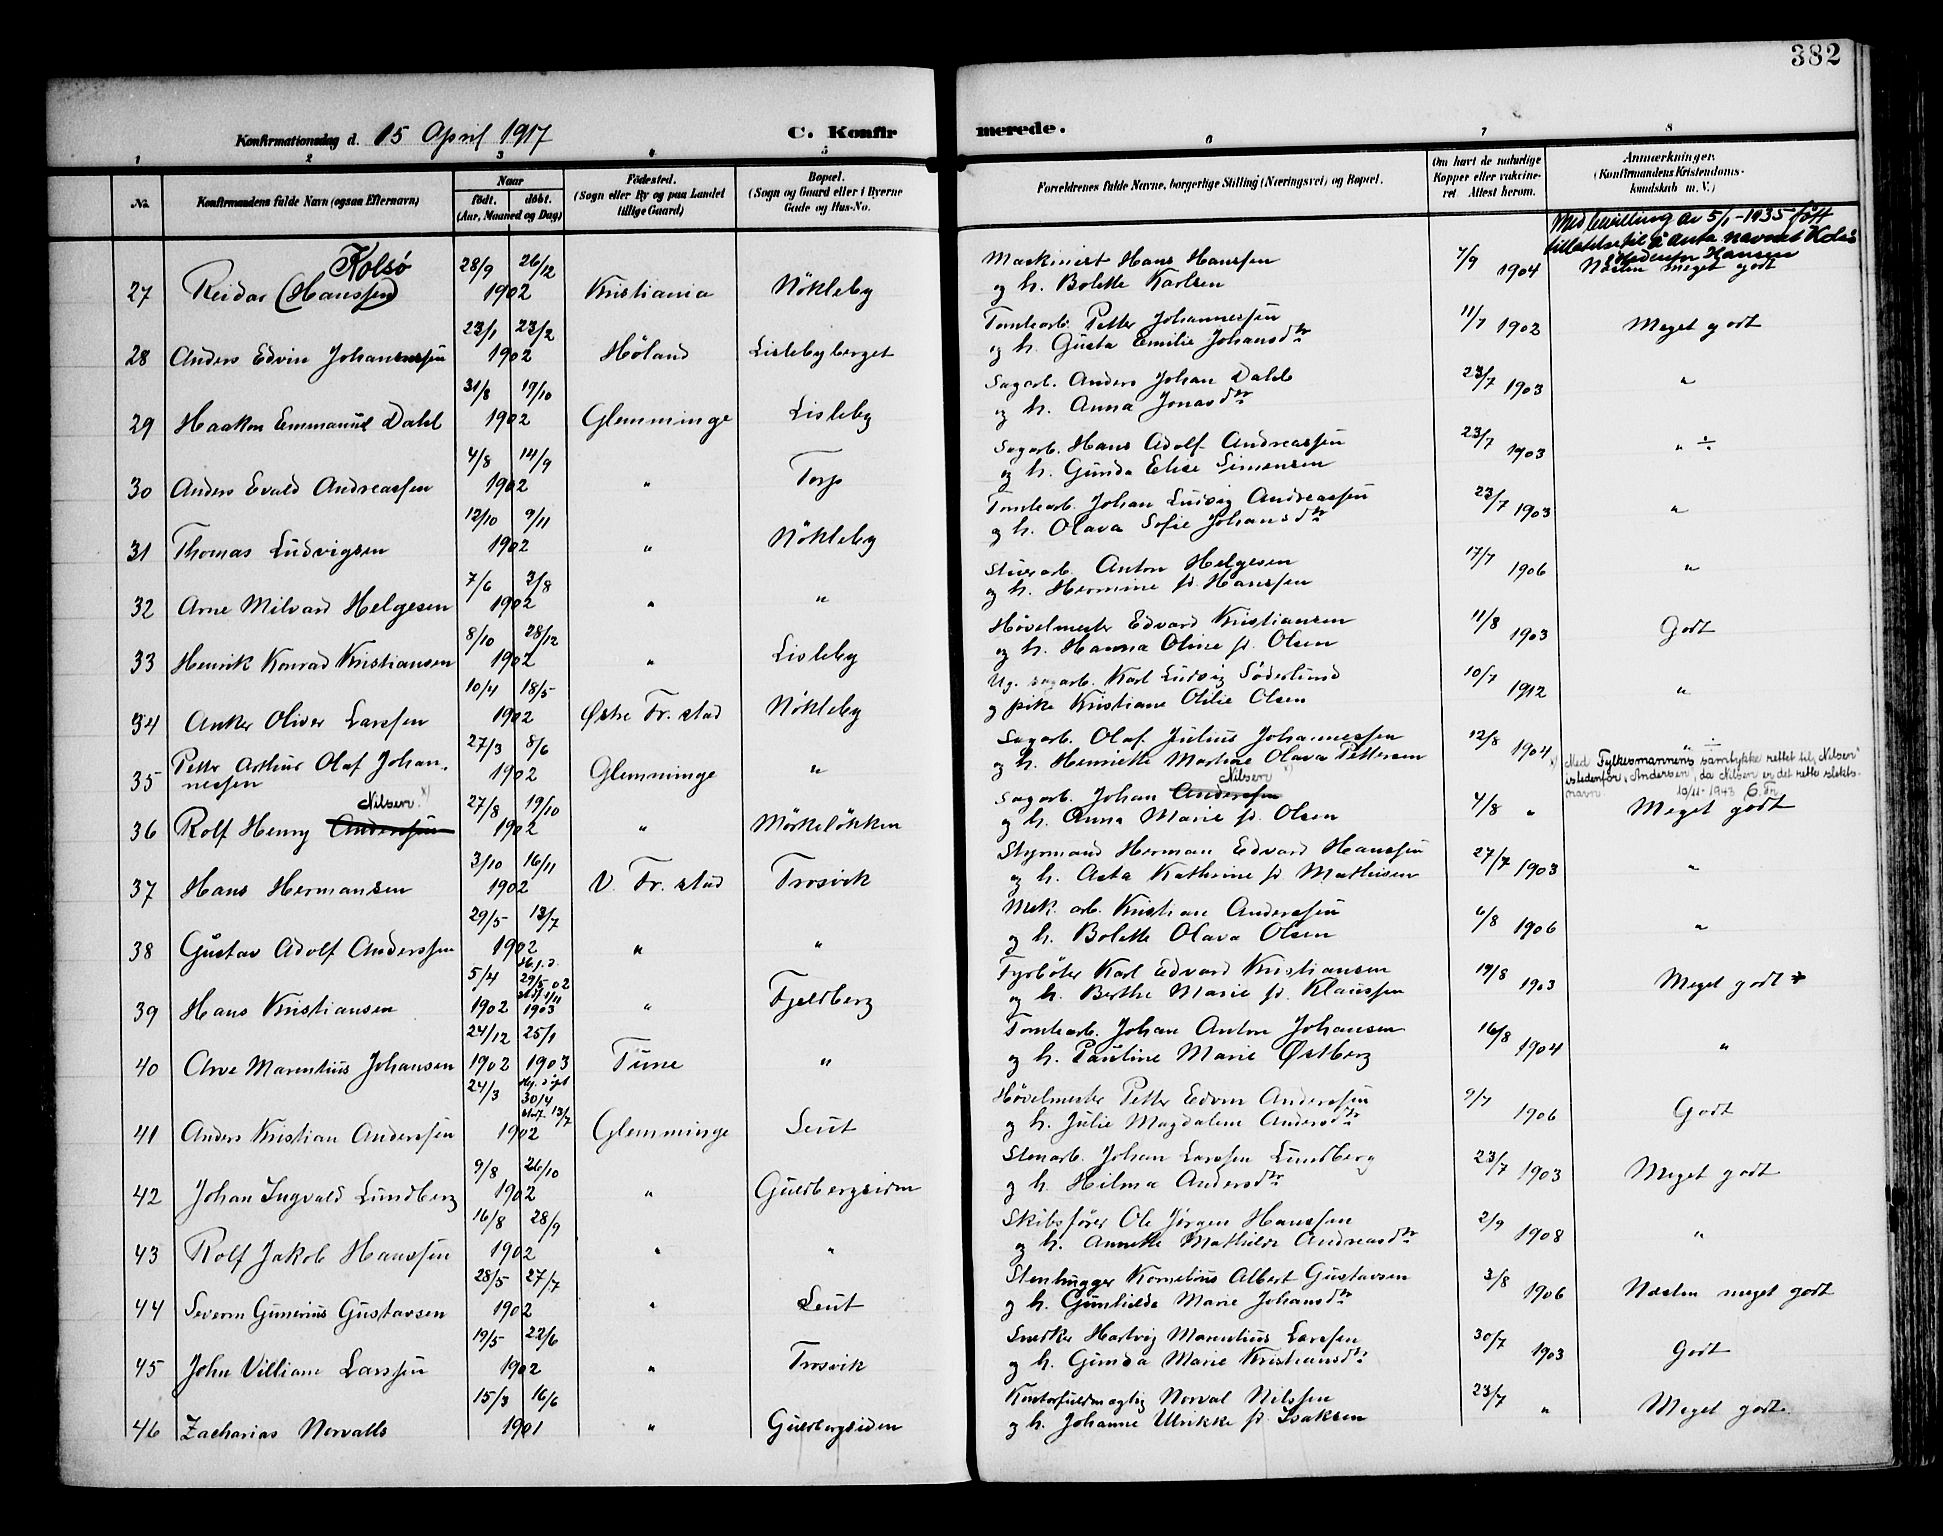 382
Konfirmationsdag d. 15 April 1917
C. Konfirmerede.
1 2 3 4 5 6 7 8
No.
Konfirmandens fulde Navn (ogsaa Efternavn)
Naar
født. døbt.
(Aar, Maaned og Dag)
Fødested.
(Sogn eller By og paa Landet
tillige Gaard)
Bopæl.
(Sogn og Gaard eller i Byerne
Gade og Hus-No.
Forældrenes fulde Navne, borgerlige Stilling (Næringsvei) og Bopæl.
Om havt de naturlige
Kopper eller vakcine-
ret Attest herom.
Anmærkninger.
(Konfirmandens Kristendoms-
kundskab m. V.)
Med bevilling av 5/1-1935 fått
tillatelse til å anta navnet Kolsø
istedenfor Hansen
27 Reidar (Hanssen) Kolsø 28/9 26/12 1902 Kristiania Nökleby Maskinist Hans Hanssen 7/9 1904 Næsten meget godt
og h. Bolette Karlsen
28 Anders Edvin Johannessen 23/1 23/2 1902 Høland Lislebyberget Tomtearb. Petter Johannessen 11/7 1902 Meget godt
og h. Gusta Emilie Johansdtr
29 Haakon Emmanuel Dahl 31/8 19/10 1902 Glemminge Lisleby Sagarb. Anders Johan Dahl 23/7 1903 "
og h. Anna Jonasdtr
30 Anders Evald Andreassen 4/8 14/9 1902 " Torp Sagarb. Hans Adolf Andreassen 23/7 1903 " ÷
og h. Gunda Elise Simensen
31 Thomas Ludvigsen 12/10 9/11 1902 " Nökleby Tomtearb. Johan Ludvig Andreassen 23/7 1903 "
og h. Olava Sofie Johansdtr
32 Arne Milvard Helgesen 7/6 3/8 1902 " " Stuerarb. Anton Helgesen 17/7 1906 "
og h. Hermine f. Hanssen
33 Henrik Konrad Kristiansen 8/10 28/12 1902 " Lisleby Høvelmester Edvard Kristiansen 11/8 1903 Godt
og h. Hanna Oline f. Olsen
34 Anker Oliver Larssen 10/4 18/5 1902 Østre Fr.stad Nökleby Ug. sagarb. Karl Ludvig Söderlund 10/7 1912 "
og pike Kristiane Otilie Olsen
35 Petter Arthur Olaf Johan-
nessen 27/3 8/6 1902 Glemminge " Sagarb. Olaf Julius Johannessen 12/8 1904 " ÷
og h. Henriette Martine Olava Pettersen
x) Med Fylkesmannens samtykke rettet til „Nilsen"
istedenfor „Andersen", da Nilsen er det rette slekts-
navn. 19/11-1943
36 Rolf Henry Anderssen Nilsen x) 27/8 19/10 1902 " Mörkelökken Sagarb. Johan Anderssen Nilsen x) 4/8 " Meget godt
og h. Anna Marie f. Olsen
37 Hans Hermansen 3/10 16/11 1902 V. Fr. stad Trosvik Styrmand Herman Edvard Hanssen 27/7 1903 "
og h. Asta Kathrine f. Mathisen
38 Gustav Adolf Anderssen 29/5 13/7 1902 " " Mek. arb. Kristian Anderssen 6/8 1906 "
og h. Bolette Olava Olsen
39 Hans Kristiansen 5/4 1902 Hj. d. 29/5 02 stadf. 1/11 1903 " Fjeldberg Fyrböter Karl Edvard Kristiansen 19/8 1903 Meget godt ÷
og h. Berthe Marie f. Klaussen
40 Arve Marentius Johansen 24/12 1902 25/1 1903 Tune " Tomtearb. Johan Anton Johansen 16/8 1904 "
og h. Pauline Marie Østberg
41 Anders Kristian Anderssen 24/3 Hj. döpt 30/4 stadf. 13/7 1902 Glemminge Leut Høvelmester Petter Edvin Anderssen 9/7 1906 Godt
og h. Julie Magdalene Andersdtr
42 Johan Ingvald Lundberg 9/8 26/10 1902 " Guldbergsiden Stenarb. Johan Larssen Lundberg 23/7 1903 Meget godt
og h. Hilma Andersdtr
43 Rolf Jakob Hanssen 16/8 28/9 1902 " " Skibsfører Ole Jørgen Hanssen 2/9 1908 "
og h. Annette Mathilde Andreasdtr
44 Severin Gunerius Gustavsen 28/5 27/7 1902 " Leut Stenhugger Kornelius Albert Gustavsen 3/8 1906 Næsten meget godt
og h. Gunhilda Marie Johansdtr
45 John Villiam Larssen 19/5 22/6 1902 " Trosvik Snedker Hartvig Marentius Larssen 30/7 1903 Godt
og h. Gunda Marie Kristiansdtr
46 Zacharias Norvalls 15/3 16/6 1901 " Guldbergsiden Kontorfuldmægtig Norval Nilssen 23/7 " Meget godt.
og h. Johanne Ulrikke f. Isaksen